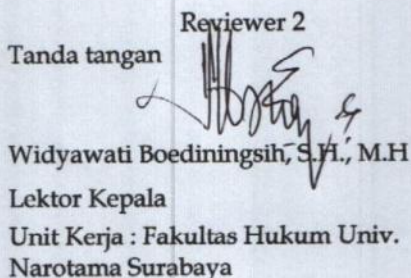 Reviewer 2
Tanda tangan
Widyawati Boediningsih, S.H., M.H
Lektor Kepala
Unit Kerja : Fakultas Hukum Univ.
Narotama Surabaya